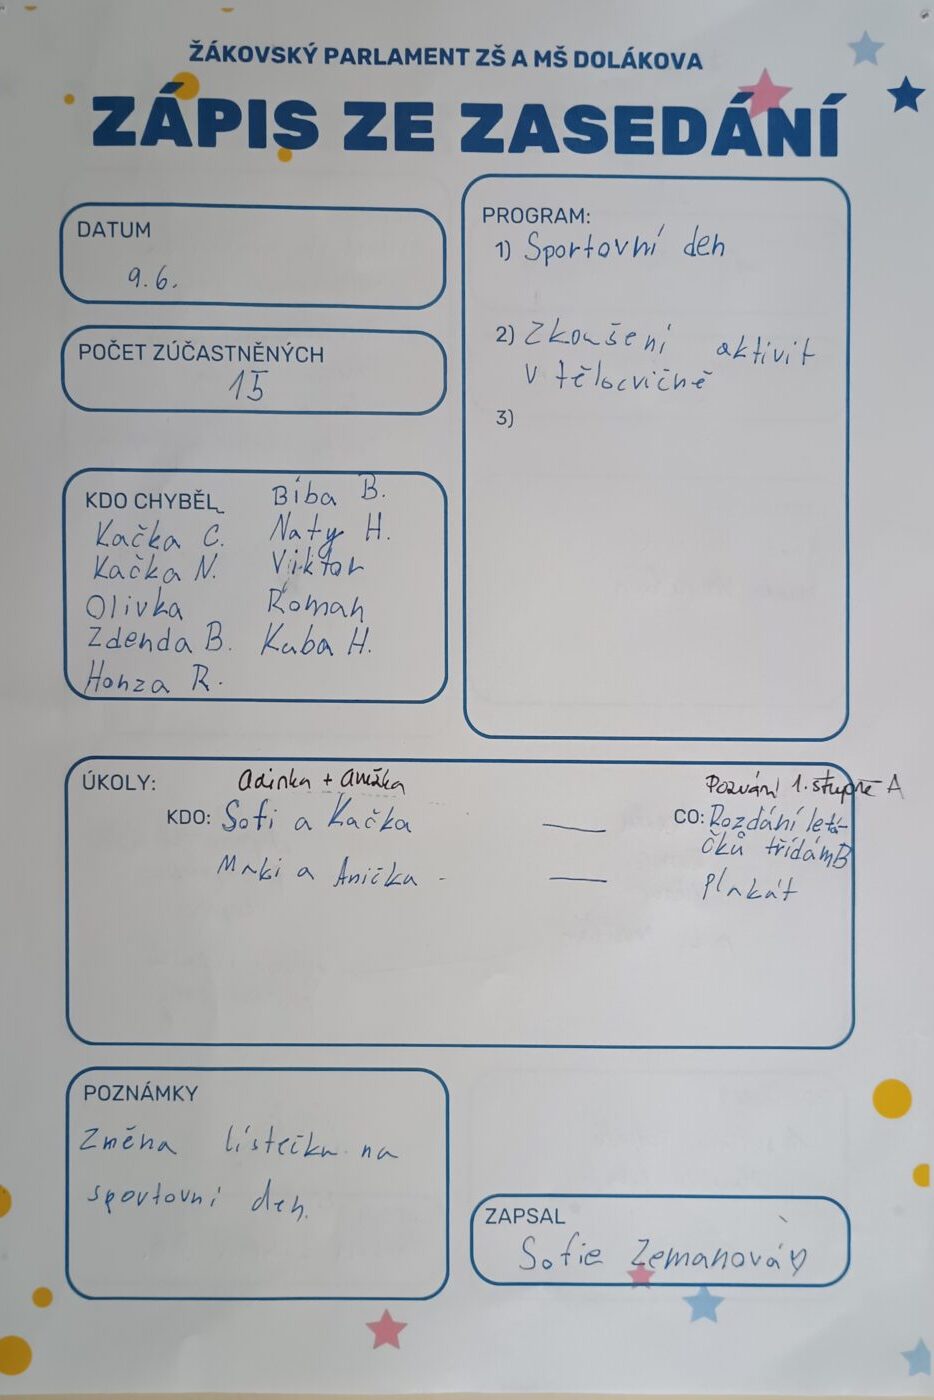 ŽÁKOVSKÝ PARLAMENT ZŠ A MŠ DOLÁKOVA
ZÁPIS ZE ZASEDÁNÍ
DATUM
9.6.
POČET ZÚČASTNĚNÝCH
15
KDO CHYBĚL Bíba B.
Kačka C. Naty H.
Kačka N. Viktor
Olivka Roman
Zdenda B. Kuba H.
Honza R.
PROGRAM:
1) Sportovní den
2) Zkoušení aktivit
v tělocvičně
3)
ÚKOLY: Adinka + Anežka Pozvání 1. stupně A
KDO: Sofi a Kačka — CO: Rozdání letá-
čků třídám B
a Anička - — plakát
POZNÁMKY
Změna lístečku na
sportovní den.
ZAPSAL
Sofie Zemanová